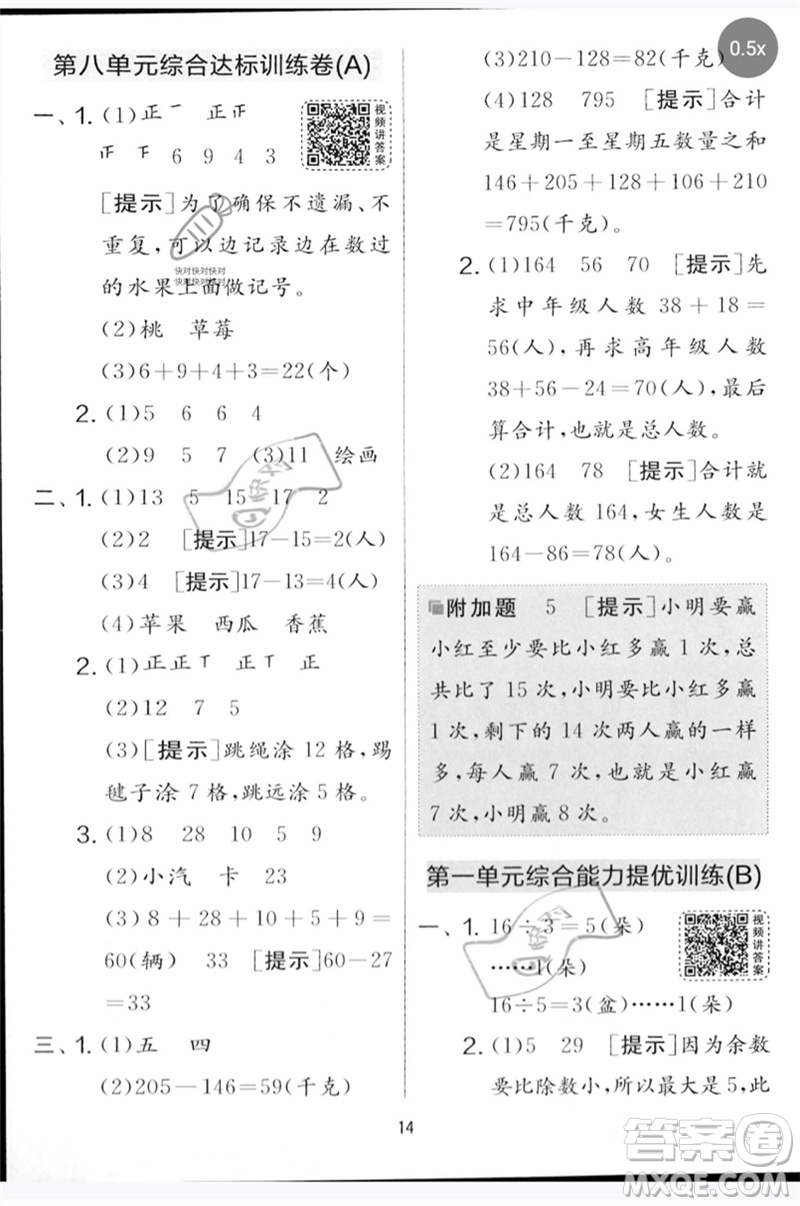 第八单元综合达标训练卷(A)
一、1. (1)正㇐ 正𠄟
正𠄟 6 9 4 3
视频讲答案
[提示]为了确保不遗漏、不
重复，可以边记录边在数过
快对快对快对
快对快对快对
的水果上面做记号。
(2)桃 草莓
(3)6+9+4+3=22(个)
2. (1)5 6 6 4
(2)9 5 7 (3)11 绘画
二、1. (1)13 5 15 17 2
(2)2 [提示]17-15=2(人)
(3)4 [提示]17-13=4(人)
(4)苹果 西瓜 香蕉
2. (1)正正丅 正丅 正
(2)12 7 5
(3)[提示]跳绳涂 12 格，踢
毽子涂 7 格，跳远涂 5 格。
3. (1)8 28 10 5 9
(2)小汽 卡 23
(3)8+28+10+5+9=
60(辆) 33 [提示]60-27
=33
三、1. (1)五 四
(2)205-146=59(千克)
0.5x
(3)210-128=82(千克)
(4)128 795 [提示]合计
是星期一至星期五数量之和
146+205+128+106+210
=795(千克)
2. (1)164 56 70 [提示]先
求中年级人数 38+18=
56(人)，再求高年级人数
38+56-24=70(人)，最后
算合计，也就是总人数。
(2)164 78 [提示]合计就
是总人数 164，女生人数是
164-86=78(人)。
附加题 5 [提示]小明要赢
小红至少要比小红多赢 1 次，总
共比了 15 次，小明要比小红多赢
1 次，剩下的 14 次两人赢的一样
多，每人赢 7 次，也就是小红赢
7 次，小明赢 8 次。
第一单元综合能力提优训练(B)
一、1. 16÷3=5(朵)
……1(朵)
视频讲答案
16÷5=3(盆)……1(朵)
2. (1)5 29 [提示]因为余数
要比除数小，所以最大是 5，此
14
答案卷
MXQE.COM